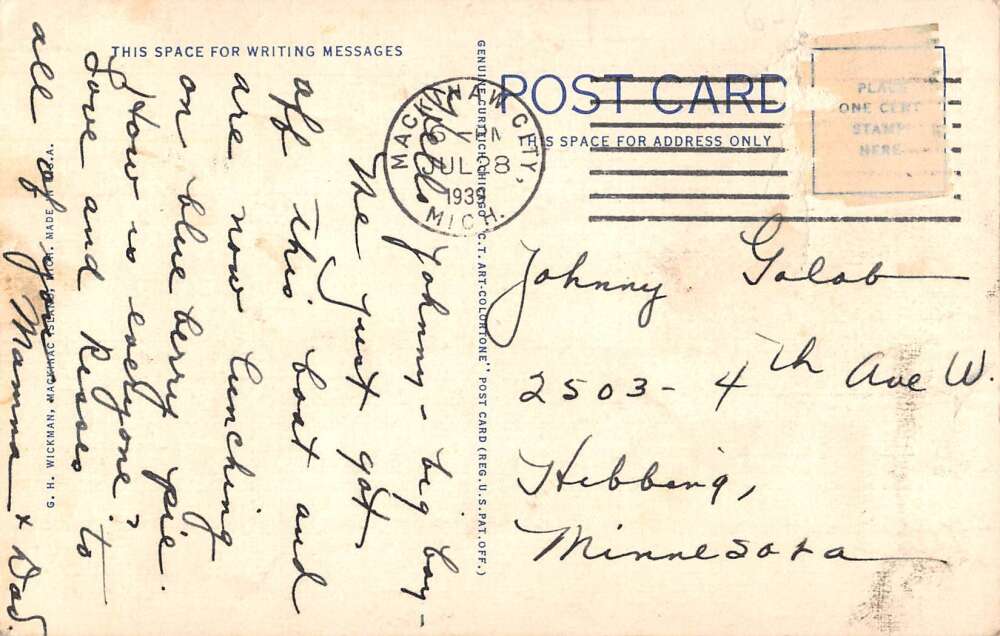 THIS SPACE FOR WRITING MESSAGES
Hello
Johnny - big boy -
We just got
off this boat and
are now lunching
on blue berry pie.
How is everyone?
Love and kisses to
all of you
Mamma & Dad
G. H. WICKMAN, MACKINAC ISLAND, MICH. MADE IN U.S.A.
GENUINE CURTEICH-CHICAGO "C.T. ART-COLORTONE" POST CARD (REG. U.S. PAT. OFF.)
POST CARD
THIS SPACE FOR ADDRESS ONLY
PLACE
ONE CENT
STAMP
HERE
MACKINAW CITY,
JUL 8
1939
MICH.
Johnny Golob
2503 - 4th Ave W.
Hibbing,
Minnesota